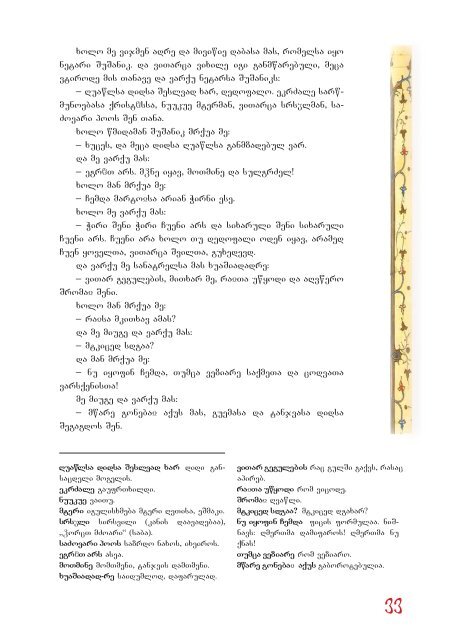 ხოლო მე ვიჯმენ ადრე და მივიწიე დაბასა მას, რომელსა იყო
ნეტარი შუშანიკ. და ვითარცა ვიხილე იგი განმწარებული, მეცა
ვტიროდე მის თანავე და ვარქუ ნეტარსა შუშანიკს:
– ღუაწლსა დიდსა შესლვად ხარ, დედოფალო. ეკრძალე სარწ-
მუნოებასა ქრისტჱსსა, ნუუკუე მტერმან, ვითარცა სრსჳლმან, სა-
ძოვარი პოოს შენ თანა.
ხოლო წმიდამან შუშანიკ მრქუა მე:
– ხუცეს, და მეცა დიდსა ღუაწლსა განმზადებულ ვარ.
და მე ვარქუ მას:
– ეგრჱთ არს. მჴნე იყავ, მოთმინე და სულგრძელ!
ხოლო მან მრქუა მე:
– ჩემდა მარტოჲსა არიან ჭირნი ესე.
ხოლო მე ვარქუ მას:
– ჭირი შენი ჭირი ჩუენი არს და სიხარული შენი სიხარული
ჩუენი არს. ჩუენი არა ხოლო თუ დედოფალი ოდენ იყავ, არამედ
ჩუენ ყოველთა, ვითარცა შვილთა, გუხედევდ.
და ვარქუ მე სანატრელსა მას ხუაშიადადრე:
– ვითარ გეგულების, მითხარ მე, რაჲთა უწყოდი და აღვწერო
შრომაჲ შენი.
ხოლო მან მრქუა მე:
– რაჲსა მკითხავ ამას?
და მე მიუგე და ვარქუ მას:
– მტკიცედ სდგაა?
და მან მრქუა მე:
– ნუ იყოფინ ჩემდა, თუმცა ვეზიარე საქმეთა და ცოდვათა
ვარსქენისთა!
მე მიუგე და ვარქუ მას:
– მწარე გონებაჲ აქუს მას, გუემასა და ტანჯვასა დიდსა
შეგაგდოს შენ.
ღუაწლსა დიდსა შესლვად ხარ დიდი გან-
საცდელი მოგელის.
ეკრძალე გაუფრთხილდი.
ნუუკუე ვაითუ.
მტერი იგულისხმება მტერი ღვთისა, ეშმაკი.
სრსჳლი სირსვილი (კანის დაავადებაა),
„ჴორცთ მძოარი“ (საბა).
საძოვარი პოოს საზრდო ნახოს, იხეიროს.
ეგრჱთ არს ასეა.
მოთმინე მომთმენი, ტანჯვის დამთმენი.
ხუაშიადად-რე საიდუმლოდ, დაფარულად.
ვითარ გეგულების რაც გულში გაქვს, რასაც
აპირებ.
რაჲთა უწყოდი რომ ვიცოდე.
შრომაჲ ღვაწლი.
მტკიცედ სდგაა? მტკიცედ დგახარ?
ნუ იყოფინ ჩემდა ფიცის ფორმულაა. ნიშ-
ნავს: ღმერთმა დამიფაროს! ღმერთმა ნუ
ქნას!
თუმცა ვეზიარე რომ ვეზიარო.
მწარე გონებაჲ აქუს გაბოროტებულია.
33